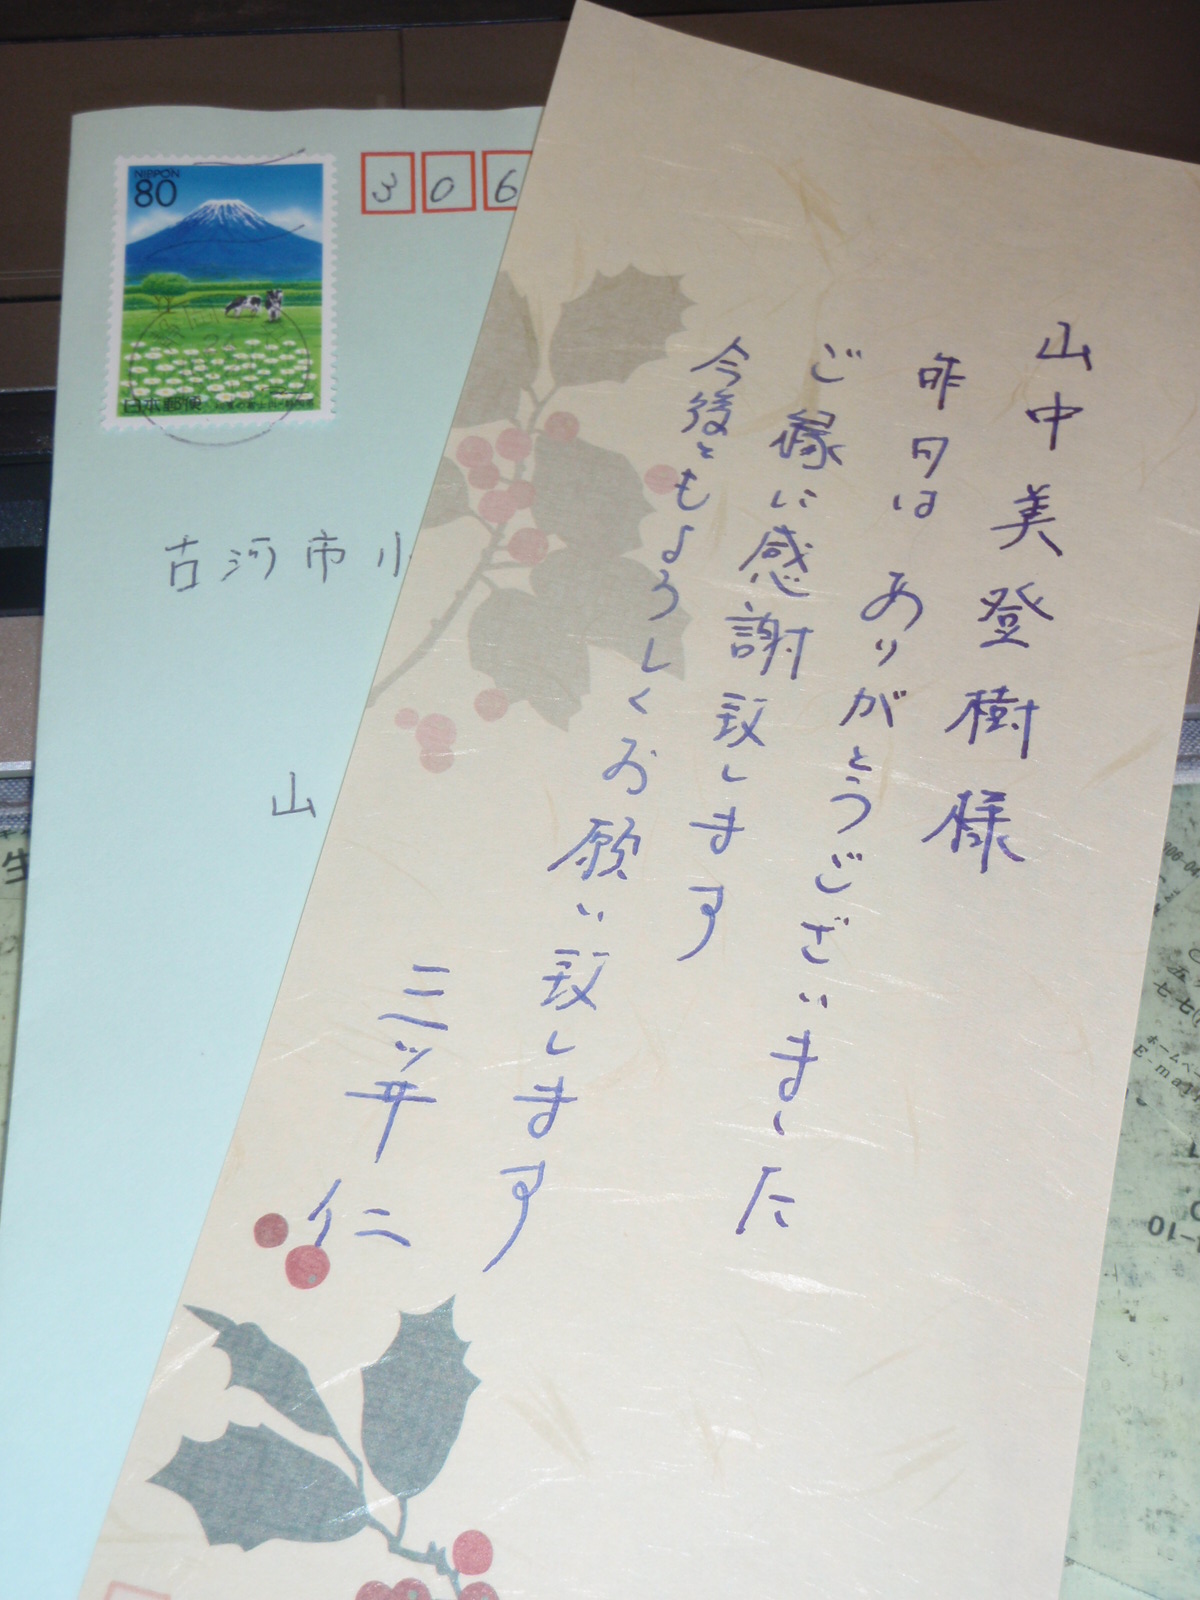 山中美登樹様
昨日はありがとうございました
ご縁に感謝致します
今後ともよろしくお願い致します
三ッ井 仁
NIPPON
80
日本郵便
306
古河市小
山
生
ホームペー
E-mail